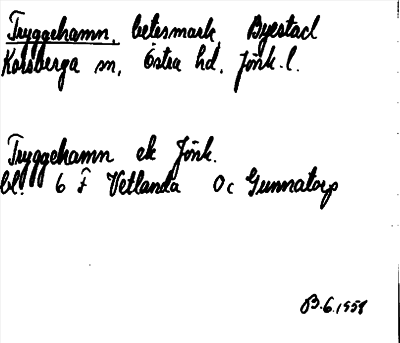 Tryggehamn, betesmark Byestad
Korsberga sn, Östra hd, Jönk. l.
Tryggehamn ek Jönk.
bl. 6 F Vetlanda 0c Gunnatorp
B.6.1958